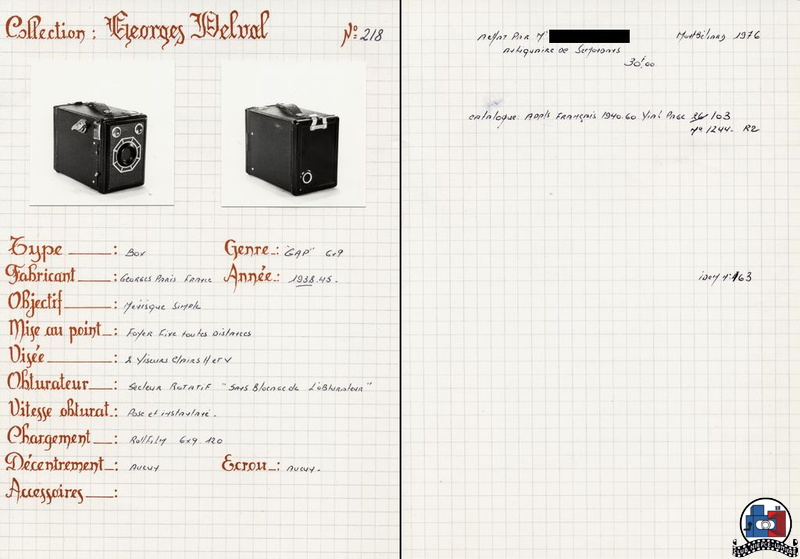 Collection : Georges Delval N° 218
Type : Box Genre : "GAP" 6x9
Fabricant : Georges Paris France Année : 1938.45.
Objectif : Ménisque Simple
Mise au point : Foyer Fixe toutes Distances
Visée : 2 Viseurs Clairs H et V
Obturateur : Secteur Rotatif "Sans Blocage de L'obturateur"
Vitesse obturat. : Pose et instantané.
Chargement : Rollfilm 6x9 120
Décentrement : Aucun Ecrou : Aucun.
Accessoires :
Achat Par Mr Montbéliard 1976
Antiquaire de
30f,00
Catalogue. App. Français 1940.60 Vial Page 36/103
N° 1244. R2
idem N° 163